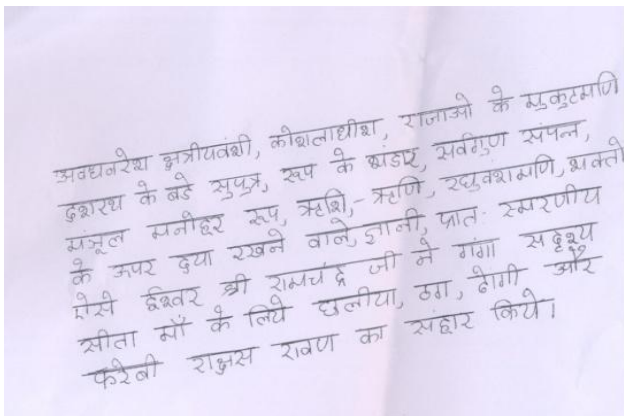 अवधनरेश क्षत्रीयवंशी, कोशलाधीश, राजाओ के मुकुटमणि
दशरथ के बडे सुपुत्र, रूप के भंडार, सर्वगुण संपन्न,
मंजूल मनोहर रूप, ऋषि,-ऋणि, रघुवंशमणि, भक्तो
के ऊपर दया रखने वाले, ज्ञानी, प्रातः स्मरणीय
ऐसे ईश्वर श्री रामचंद्र जी ने गंगा सदृश्य
सीता माँ के लिये छलीया, ठग, ढोगी और
फरेबी राक्षस रावण का संहार किये।